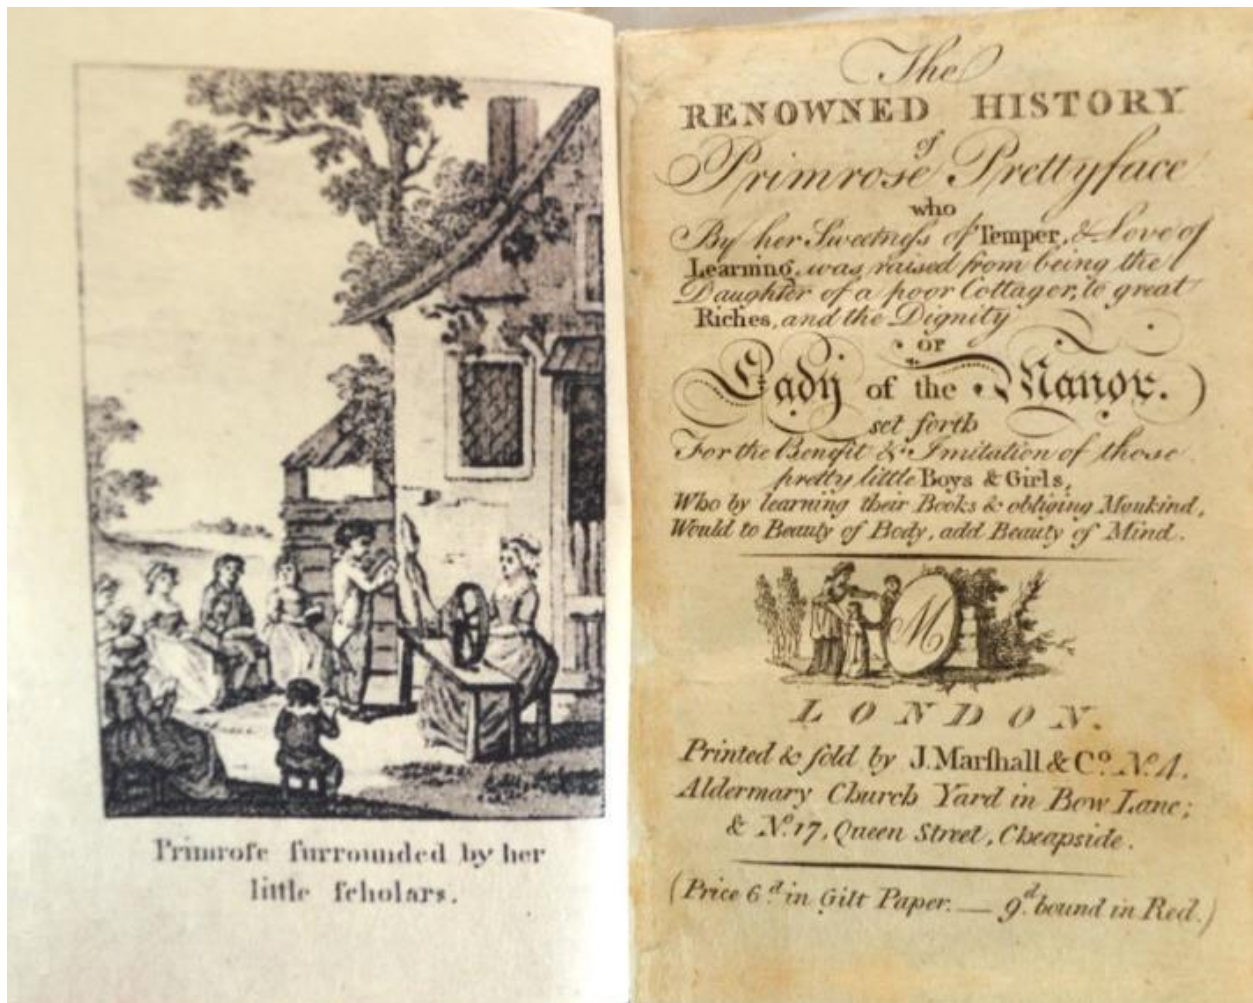 Primroſe ſurrounded by her
little ſcholars.
The
RENOWNED HISTORY
of
Primrose Prettyface
who
By her Sweetneſs of Temper, & Love of
Learning, was raised from being the
Daughter of a poor Cottager, to great
Riches, and the Dignity
of
Lady of the Manor.
set forth
For the Benefit & Imitation of those
pretty little Boys & Girls,
Who by learning their Books & obliging Mankind,
Would to Beauty of Body, add Beauty of Mind.
M
LONDON.
Printed & ſold by J. Marſhall & Co. No. 4.
Aldermary Church Yard in Bow Lane;
& No. 17, Queen Street, Cheapside.
(Price 6d. in Gilt Paper. — 9d. bound in Red.)